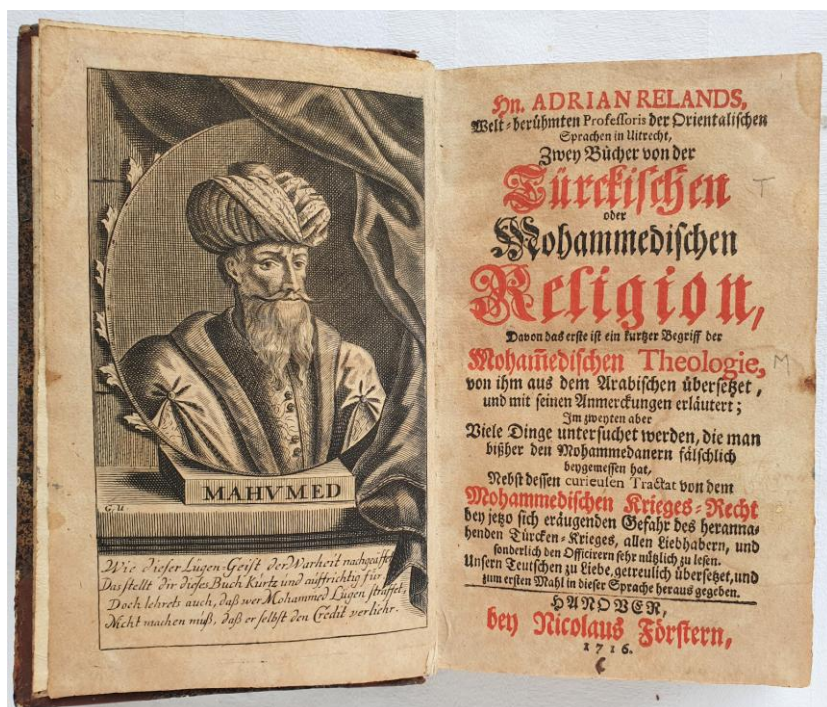 MAHVMED
G. U.
Wie dieser Lügen-Geist der Warheit nachgeäffet
Das stellt dir dieses Buch Kurtz und auffrichtig für
Doch lehrets auch, daß wer Mohammed Lügen straffet,
Nicht machen muß, daß er selbst den Credit verliehr.
Hn. ADRIAN RELANDS,
Welt-berühmten Professoris der Orientalischen
Sprachen in Uitrecht,
Zwey Bücher von der
Türckischen
oder
Mohammedischen
Religion,
Davon das erste ist ein kurtzer Begriff der
Moham̄edischen Theologie,
von ihm aus dem Arabischen übersetzet,
und mit seinen Anmerckungen erläutert;
Im zweyten aber
Viele Dinge untersuchet werden, die man
bißher den Mohammedanern fälschlich
beygemessen hat,
Nebst dessen curieusen Tractat von dem
Mohammedischen Krieges-Recht
bey jetzo sich eräugenden Gefahr des heranna-
henden Türcken-Krieges, allen Liebhabern, und
sonderlich den Officirern sehr nützlich zu lesen.
Unsern Teutschen zu Liebe, getreulich übersetzet, und
zum ersten Mahl in dieser Sprache heraus gegeben.
HANOVER,
bey Nicolaus Förstern,
1716.
T
M